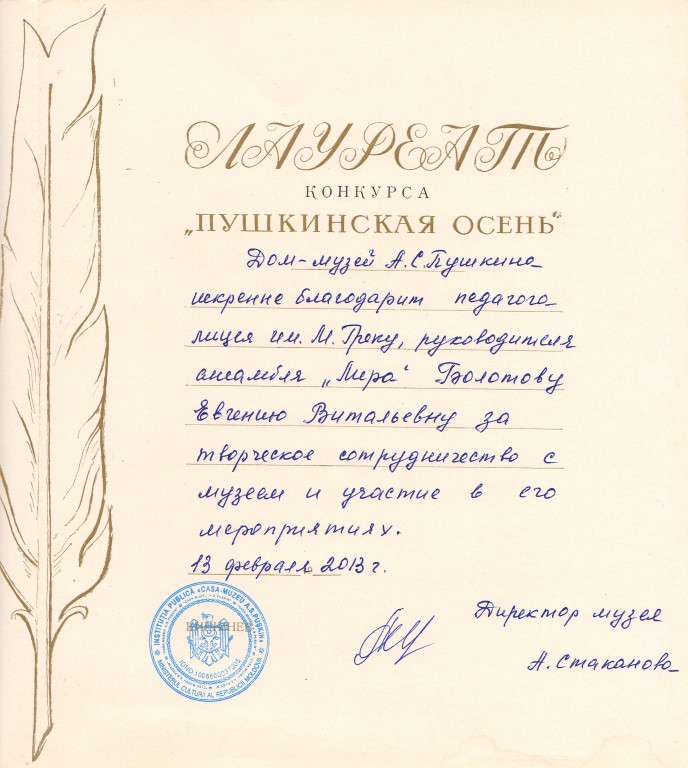 ЛАУРЕАТ
КОНКУРСА
„ПУШКИНСКАЯ ОСЕНЬ“
Дом-музей А.С.Пушкина
искренне благодарит педагога
лицея им. М. Греку, руководителя
ансамбля „Лира“ Болотову
Евгению Витальевну за
творческое сотрудничество с
музеем и участие в его
мероприятиях.
13 февраля 2013 г.
INSTITUȚIA PUBLICĂ «CASA-MUZEU A.S.PUȘKIN»
КИШИНЕВ
MINISTERUL CULTURII AL REPUBLICII MOLDOVA
Директор музея
А. Стаканова